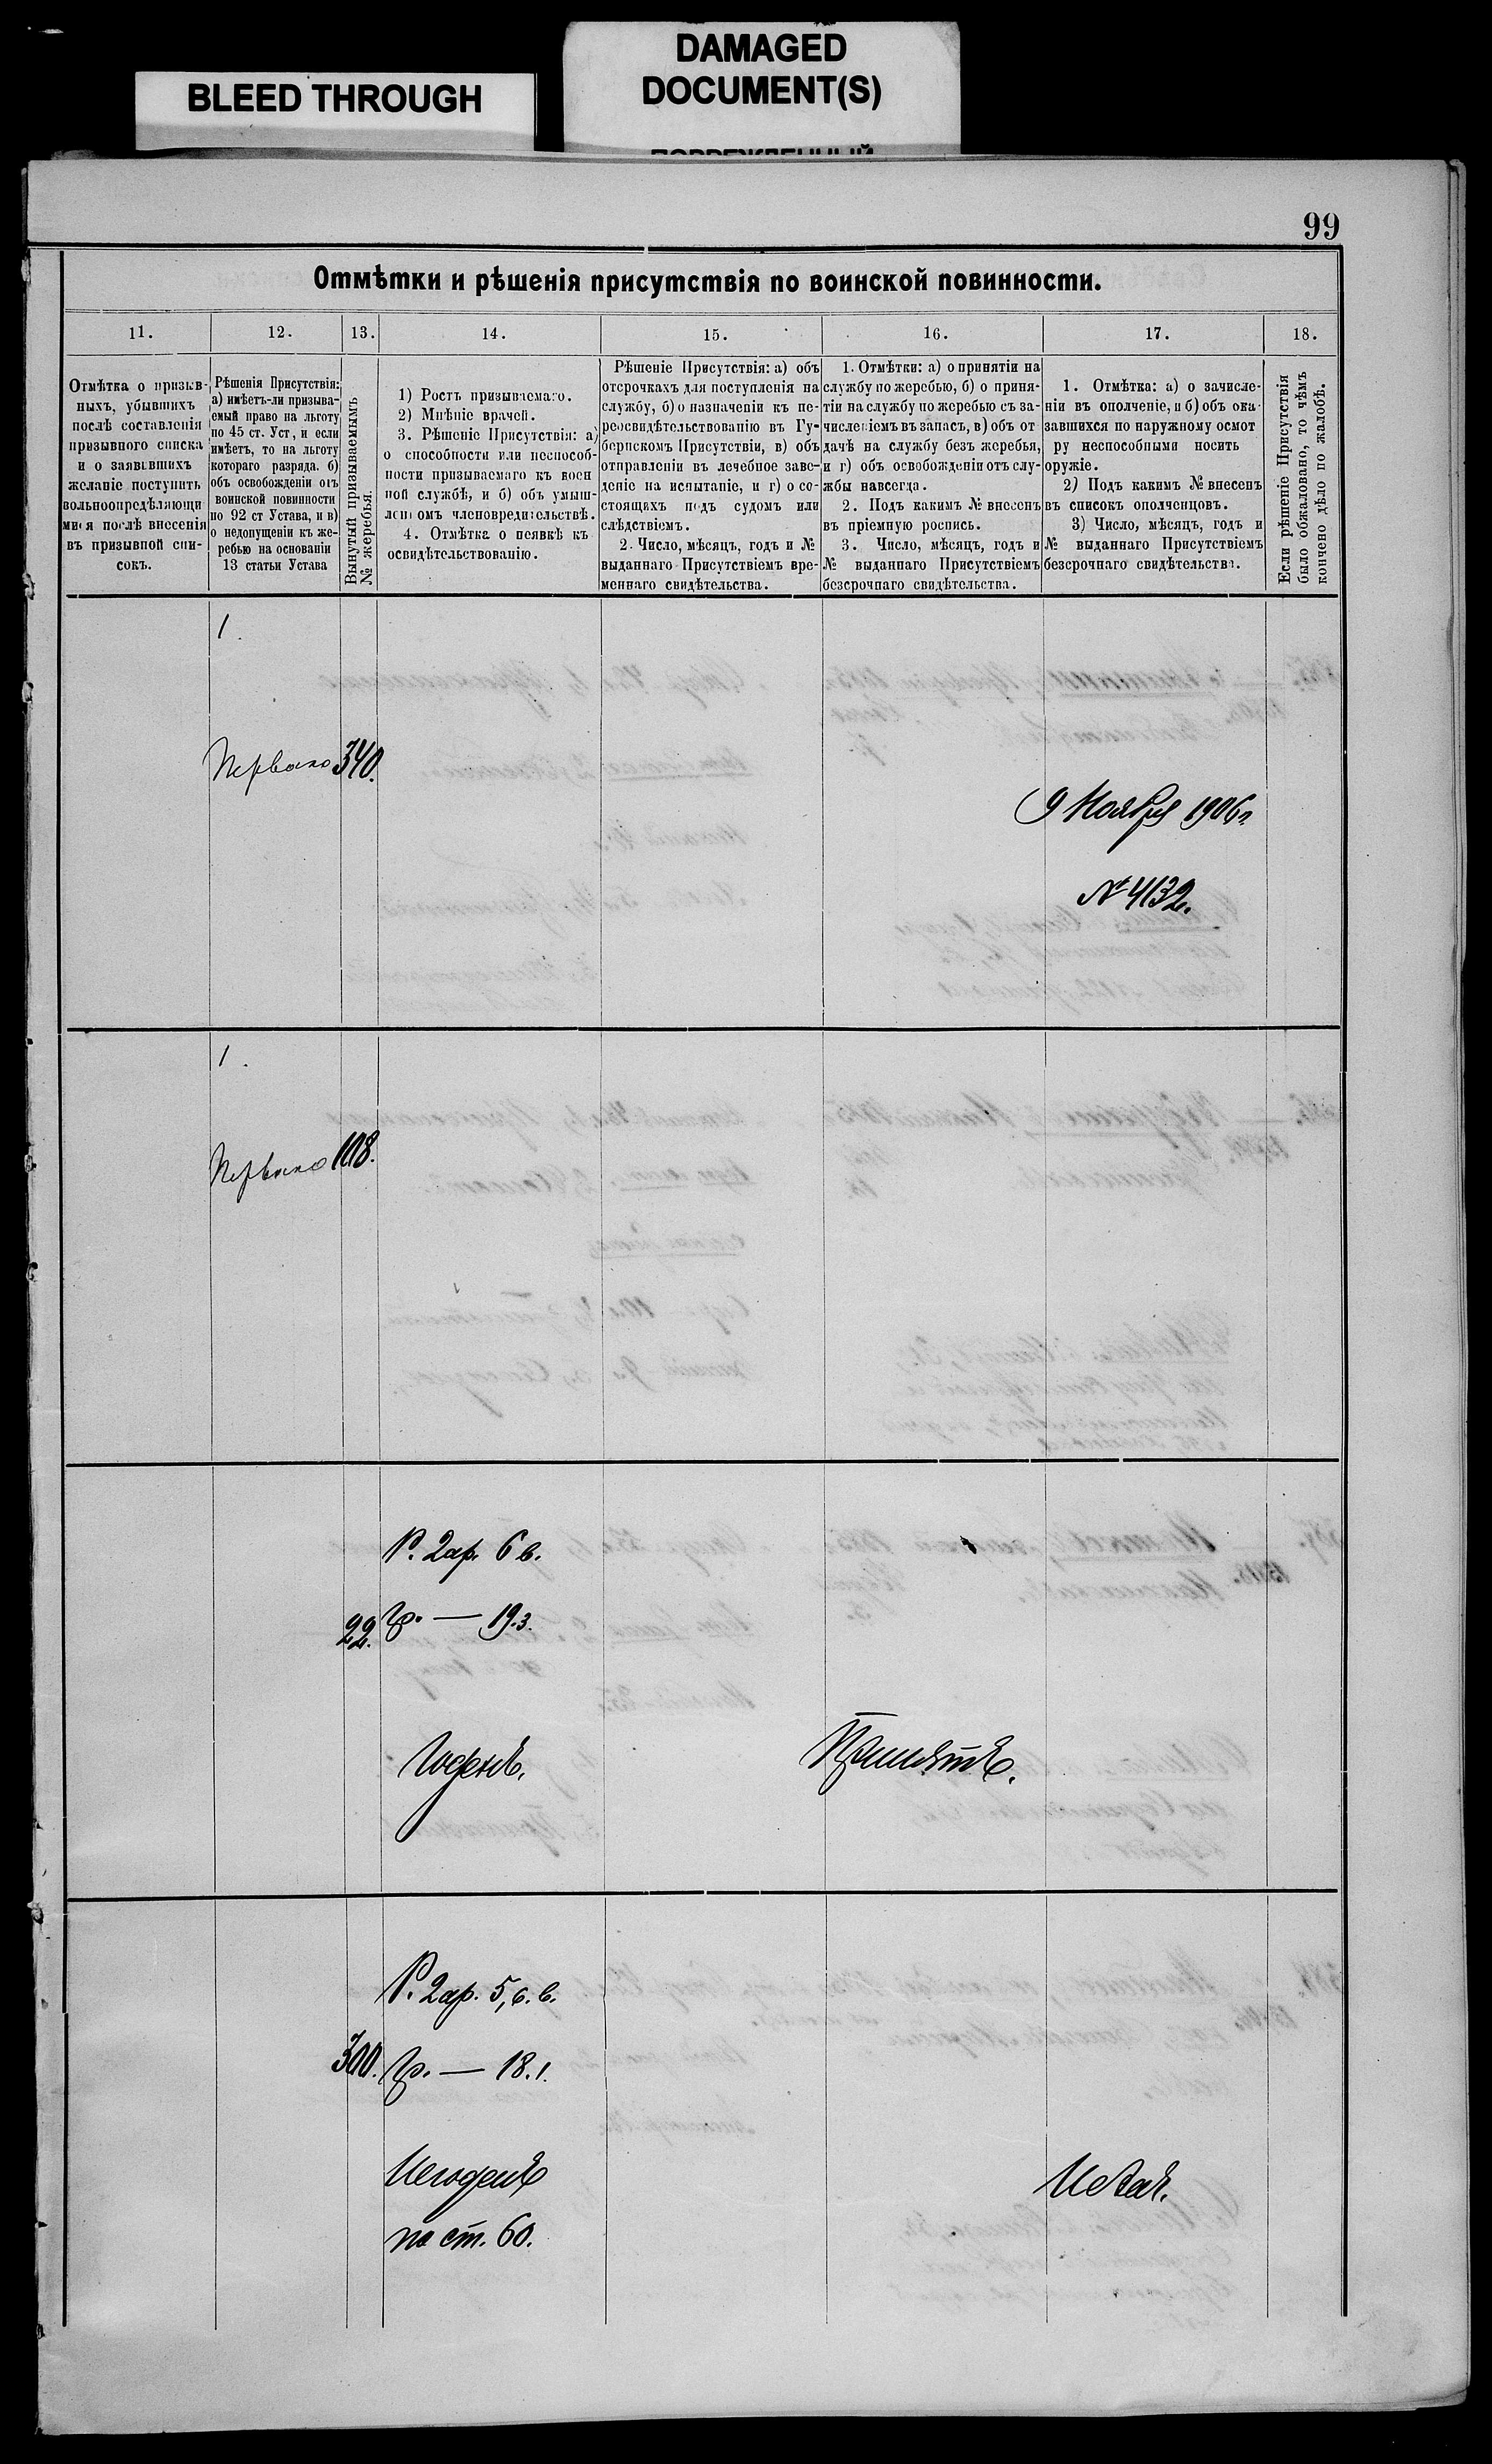 BLEED THROUGH
DAMAGED
DOCUMENT(S)
99
Отмѣтки и рѣшенія присутствія по воинской повинности.
11.
12.
13.
14.
15.
16.
17.
18.
Отмѣтка о призыв-
ныхъ, убывшихъ
послѣ составленія
призывного списка
и о заявившихъ
желаніе поступить
вольноопредѣляющи
мися послѣ внесенія
въ призывной спи-
сокъ.
Рѣшенія Присутствія:
а) имѣетъ-ли призыва-
емый право на льготу
по 45 ст. Уст, и если
имѣетъ, то на льготу
котораго разряда. б)
объ освобожденіи отъ
воинской повинности
по 92 ст Устава, и в)
о недопущеніи къ же-
ребью на основаніи
13 статьи Устава
Вынутый призываемымъ
№ жеребья.
1) Ростъ призываемаго.
2) Мнѣніе врачей.
3. Рѣшеніе Присутствія: а)
о способности или неспособ-
ности призываемаго къ воен
ной службѣ, и б) объ умыш-
ленномъ членовредительствѣ.
4. Отмѣтка о неявкѣ къ
освидѣтельствованію.
Рѣшеніе Присутствія: а) объ
отсрочкахъ для поступленія на
службу, б) о назначеніи къ пе-
реосвидѣтельствованію въ Гу-
бернскомъ Присутствіи, в) объ
отправленіи въ лечебное заве-
деніе на испытаніе, и г) о со-
стоящихъ подъ судомъ или
слѣдствіемъ.
2. Число, мѣсяцъ, годъ и №
выданнаго Присутствіемъ вре-
меннаго свидѣтельства.
1. Отмѣтки: а) о принятіи на
службу по жеребью, б) о приня-
тіи на службу по жеребью съ за-
численіемъ въ запасъ, в) объ от
дачѣ на службу безъ жеребья,
и г) объ освобожденіи отъ слу-
жбы навсегда.
2. Подъ какимъ № внесенъ
въ пріемную роспись.
3. Число, мѣсяцъ, годъ и
№ выданнаго Присутствіемъ
безсрочнаго свидѣтельства.
1. Отмѣтка: а) о зачисле-
ніи въ ополченіе, и б) объ ока-
завшихся по наружному осмот
ру неспособными носить
оружіе.
2) Подъ какимъ № внесенъ
въ списокъ ополченцовъ.
3) Число, мѣсяцъ, годъ и
№ выданнаго Присутствіемъ
безсрочнаго свидѣтельства.
Если рѣшеніе Присутствія
было обжаловано, то чѣмъ
кончено дѣло по жалобѣ.
1.
Перваго 340.
9 Ноября 1906 г.
№ 4132.
1.
Перваго 108.
Р. 2 ар. 6 в.
22. Гр. — 19.3.
Годенъ.
Принятъ.
Р. 2 ар. 5, 6. в.
300. Гр. — 18.1.
Негоденъ
по ст. 60.